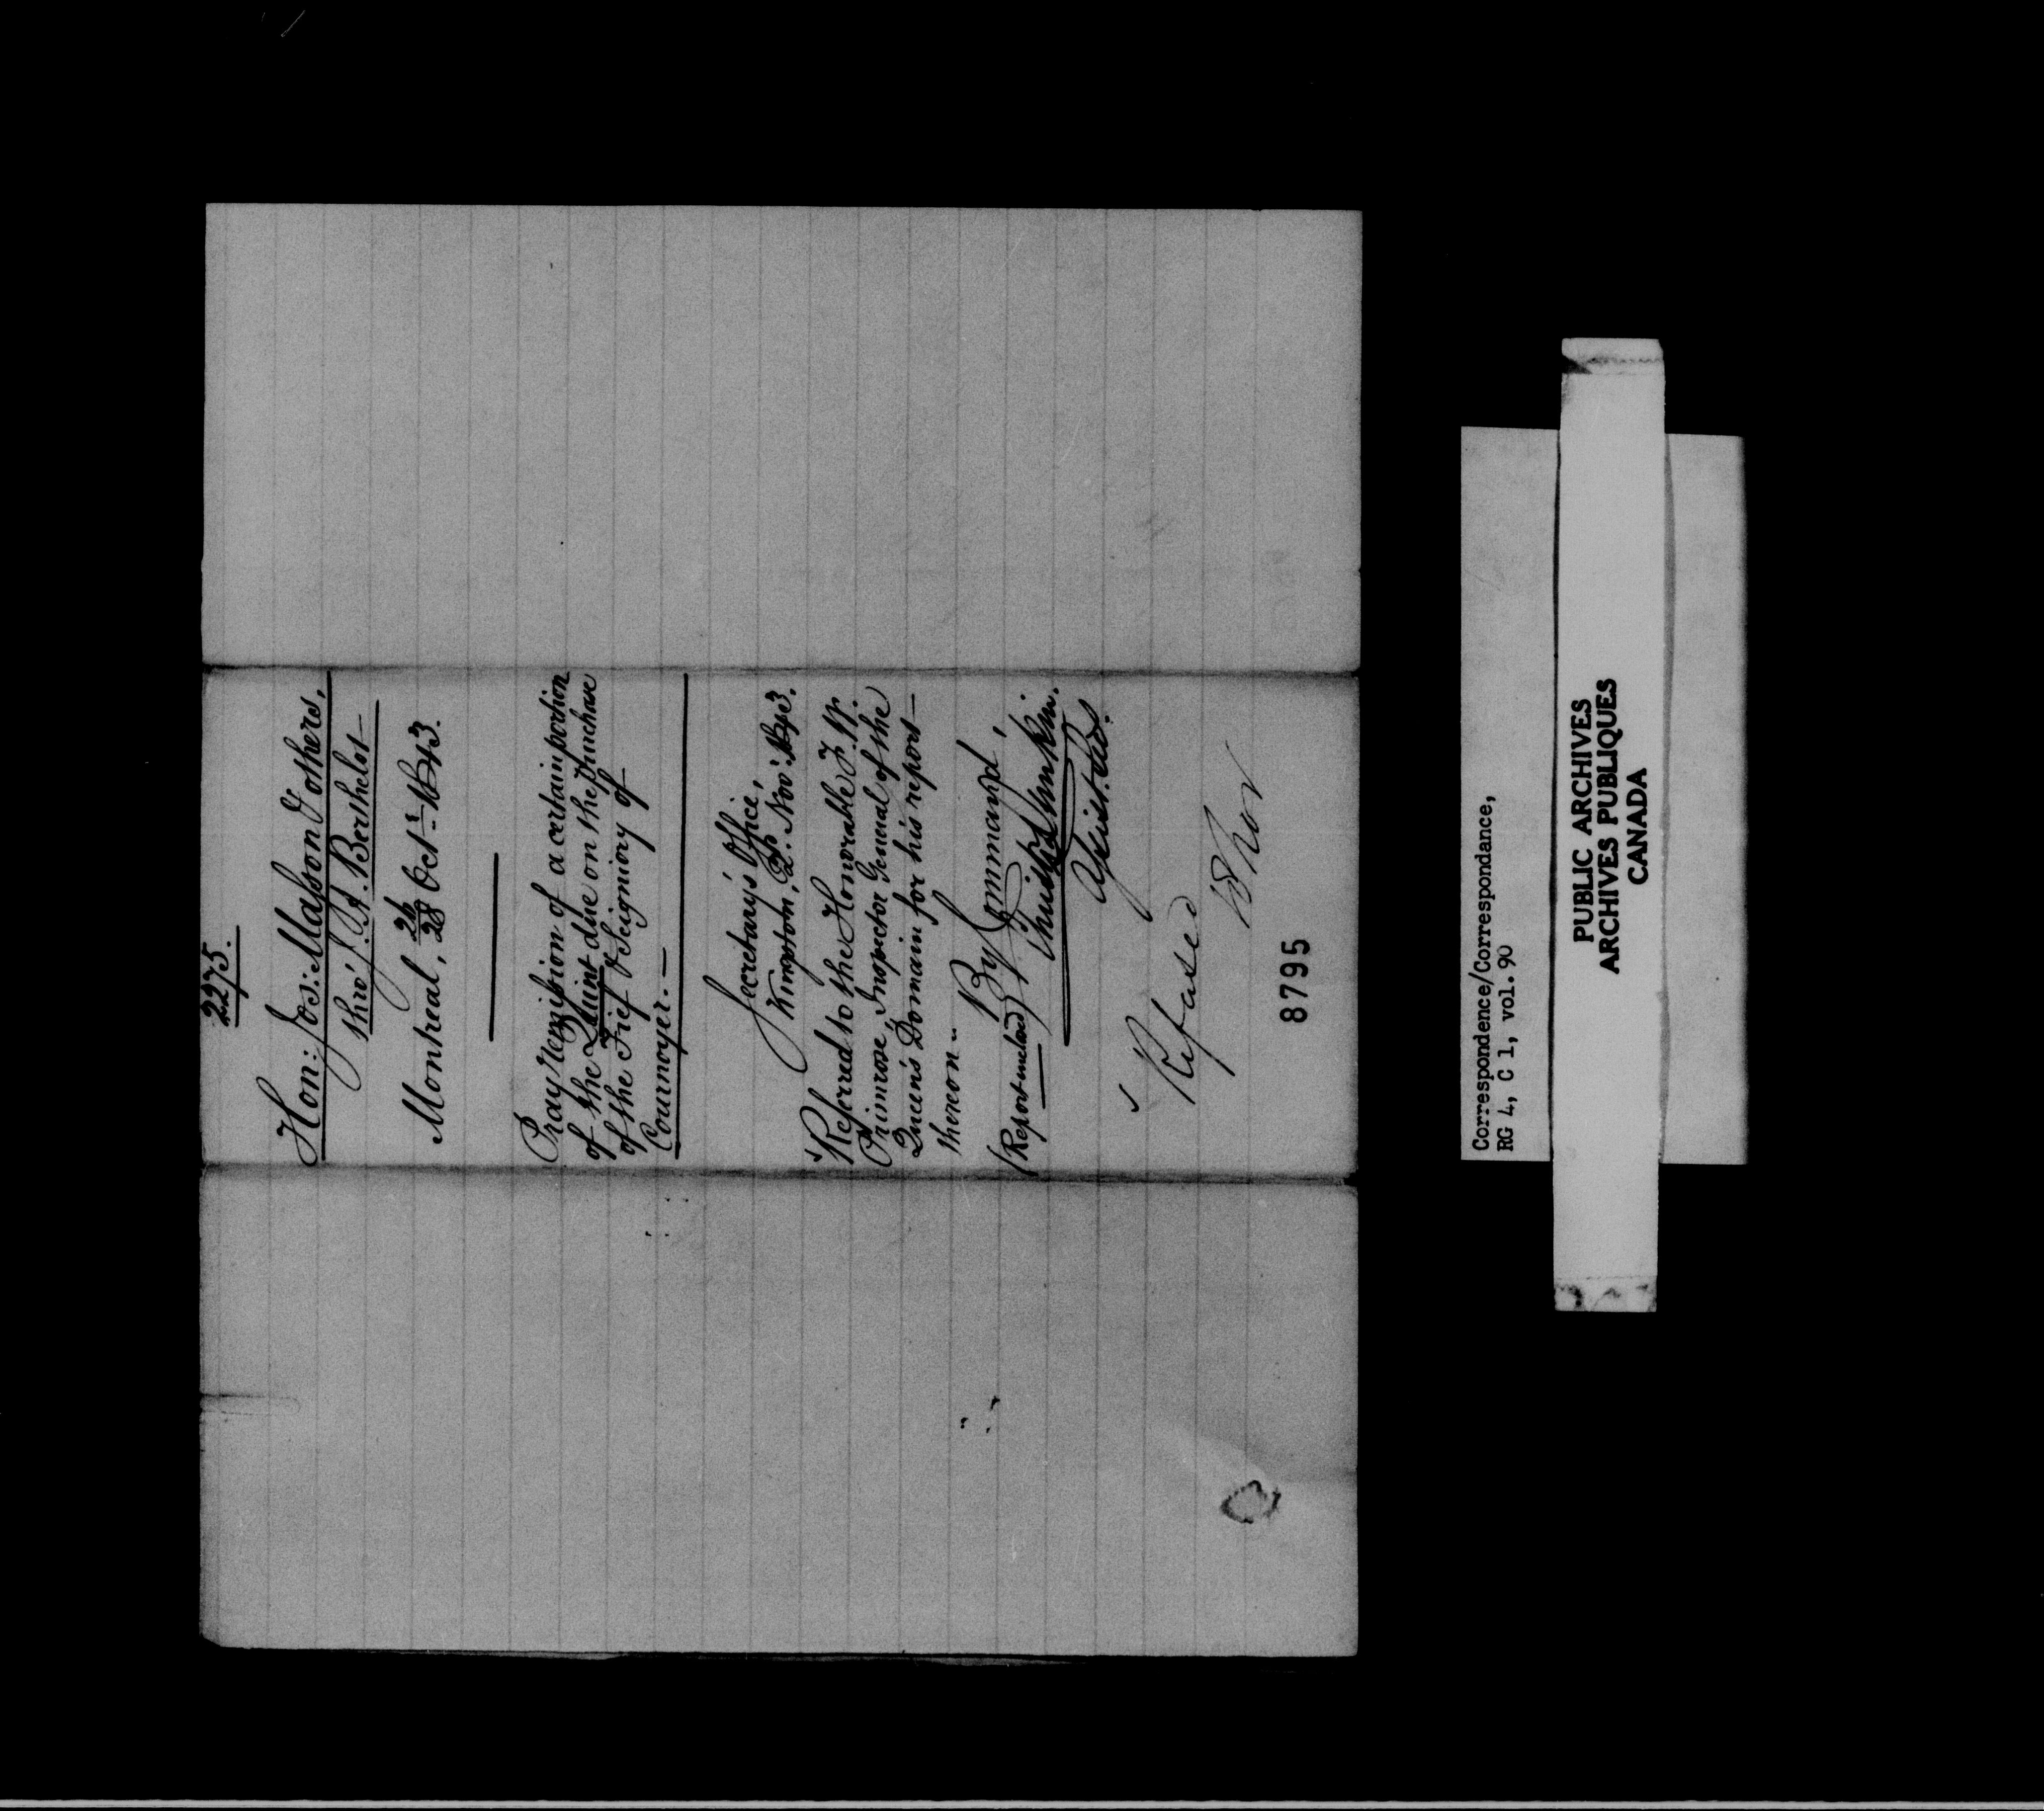 2275.
Hon: Jos: Masson & others,
thro' J. A. Berthelot
Montreal, 26/28 Octr. 1843.
Pray remission of a certain portion
of the Quint due on the purchase
of the Fief & Seigniory of
Cournoyer.—
Secretary's Office,
Kingston, Nov. 1843.
Referred to the Honorable F. W.
Primrose, Inspector General of the
Queen's Domain for his report
thereon—
By Command,
(Report inclosed)
Assist. Secy.
Refused
8795
Correspondence/Correspondance,
RG 4, C 1, vol. 90
PUBLIC ARCHIVES
ARCHIVES PUBLIQUES
CANADA